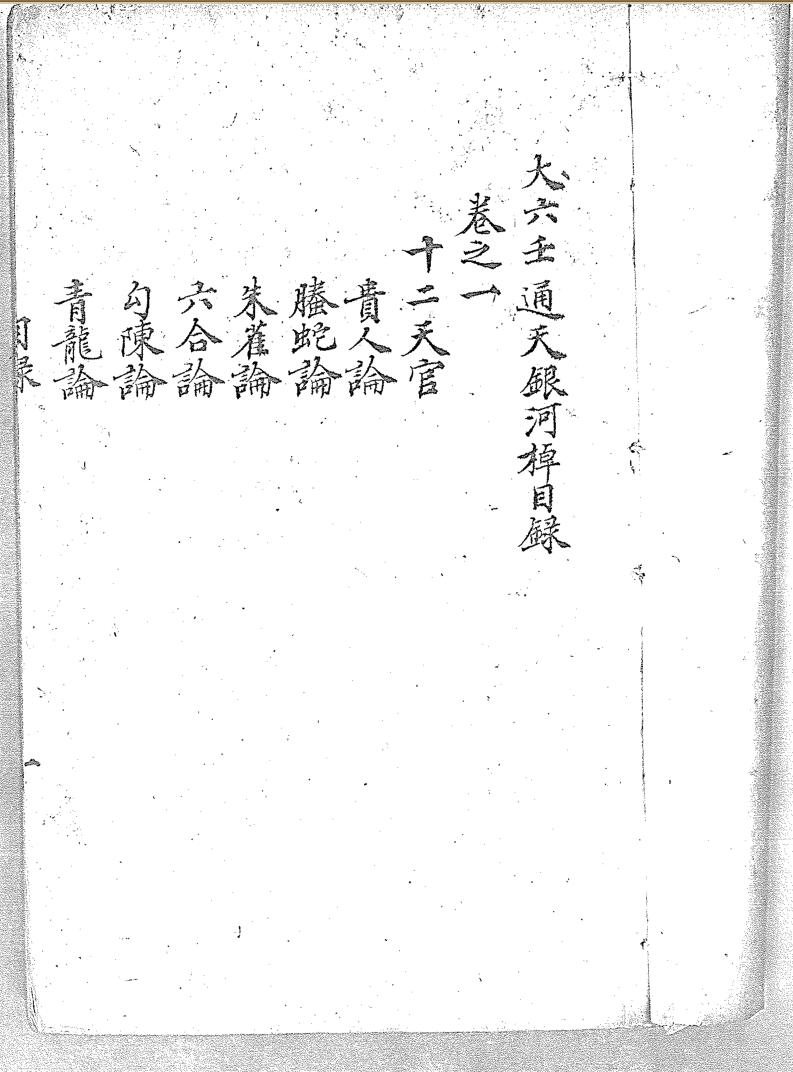 大六壬通天銀河棹目録
卷之一
十二天官
貴人論
螣蛇論
朱雀論
六合論
勾陳論
青龍論
目録
一